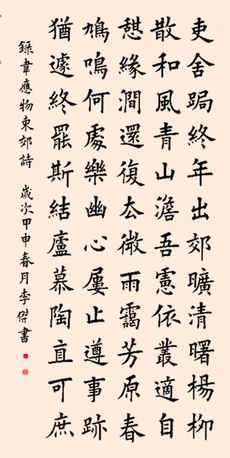 吏舍跼終年出郊曠清曙楊柳
散和風青山澹吾慮依叢適自
憇緣澗還復去微雨靄芳原春
鳩鳴何處樂幽心屢止遵事跡
猶遽終罷斯結廬慕陶直可庶
錄韋應物東郊詩 歲次甲申春月李傑書